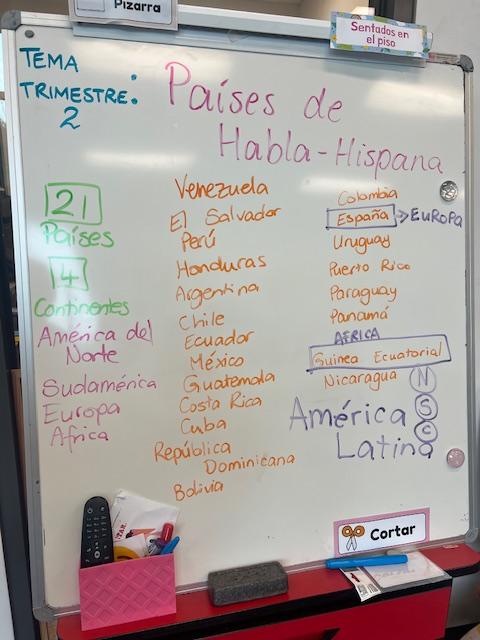 Pizarra
Sentados en
el piso
TEMA
TRIMESTRE:
2
Países de
Habla-Hispana
21
Países
4
Continentes
América del
Norte
Sudamérica
Europa
Africa
Venezuela
El Salvador
Perú
Honduras
Argentina
Chile
Ecuador
México
Guatemala
Costa Rica
Cuba
República
Dominicana
Bolivia
Colombia
España → EUROPA
Uruguay
Puerto Rico
Paraguay
Panamá
AFRICA
Guinea Ecuatorial
Nicaragua
N
S
C
América
Latina
Cortar